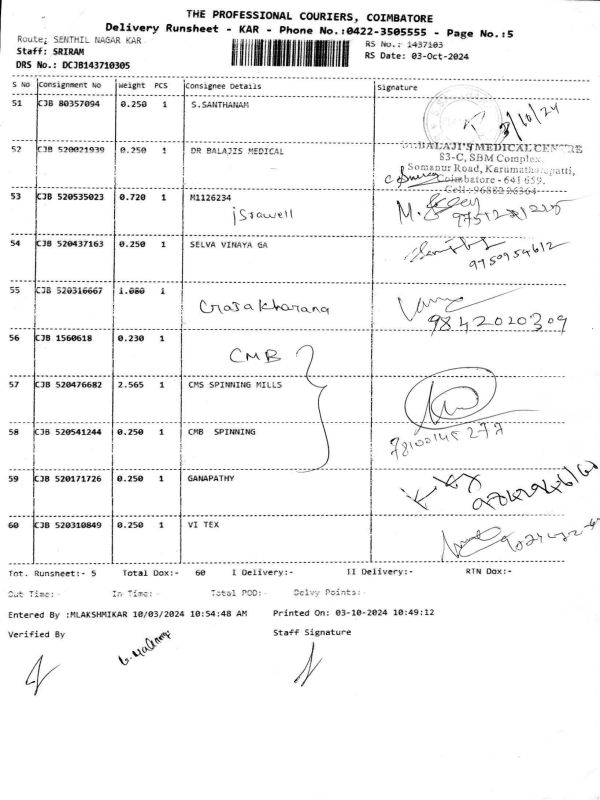 THE PROFESSIONAL COURIERS, COIMBATORE
Delivery Runsheet - KAR - Phone No.:0422-3505555 - Page No.:5
Route: SENTHIL NAGAR KAR
RS No.: 1437103
Staff: SRIRAM
RS Date: 03-Oct-2024
DRS No.: DCJB143710305
S No Consignment No Weight PCS Consignee Details Signature
51 CJB 80357094 0.250 1 S.SANTHANAM
3/10/24
52 CJB 520021939 0.250 1 DR BALAJIS MEDICAL
DR.BALAJI'S MEDICAL CENTRE
83-C, SBM Complex,
Somanur Road, Karumathampatti,
Coimbatore - 641 659.
Cell: 9688296364
53 CJB 520535023 0.720 1 M1126234
54 CJB 520437163 0.250 1 SELVA VINAYA GA
9750954612
55 CJB 520316667 1.080 1
9842020309
56 CJB 1560618 0.230 1
CMB
57 CJB 520476682 2.565 1 CMS SPINNING MILLS
58 CJB 520541244 0.250 1 CMB SPINNING
59 CJB 520171726 0.250 1 GANAPATHY
60 CJB 520310849 0.250 1 VI TEX
Tot. Runsheet:- 5 Total Dox:- 60 I Delivery:- II Delivery:- RTN Dox:-
Out Time:- In Time:- Total POD:- Delvy Points:-
Entered By :MLAKSHMIKAR 10/03/2024 10:54:48 AM Printed On: 03-10-2024 10:49:12
Verified By Staff Signature